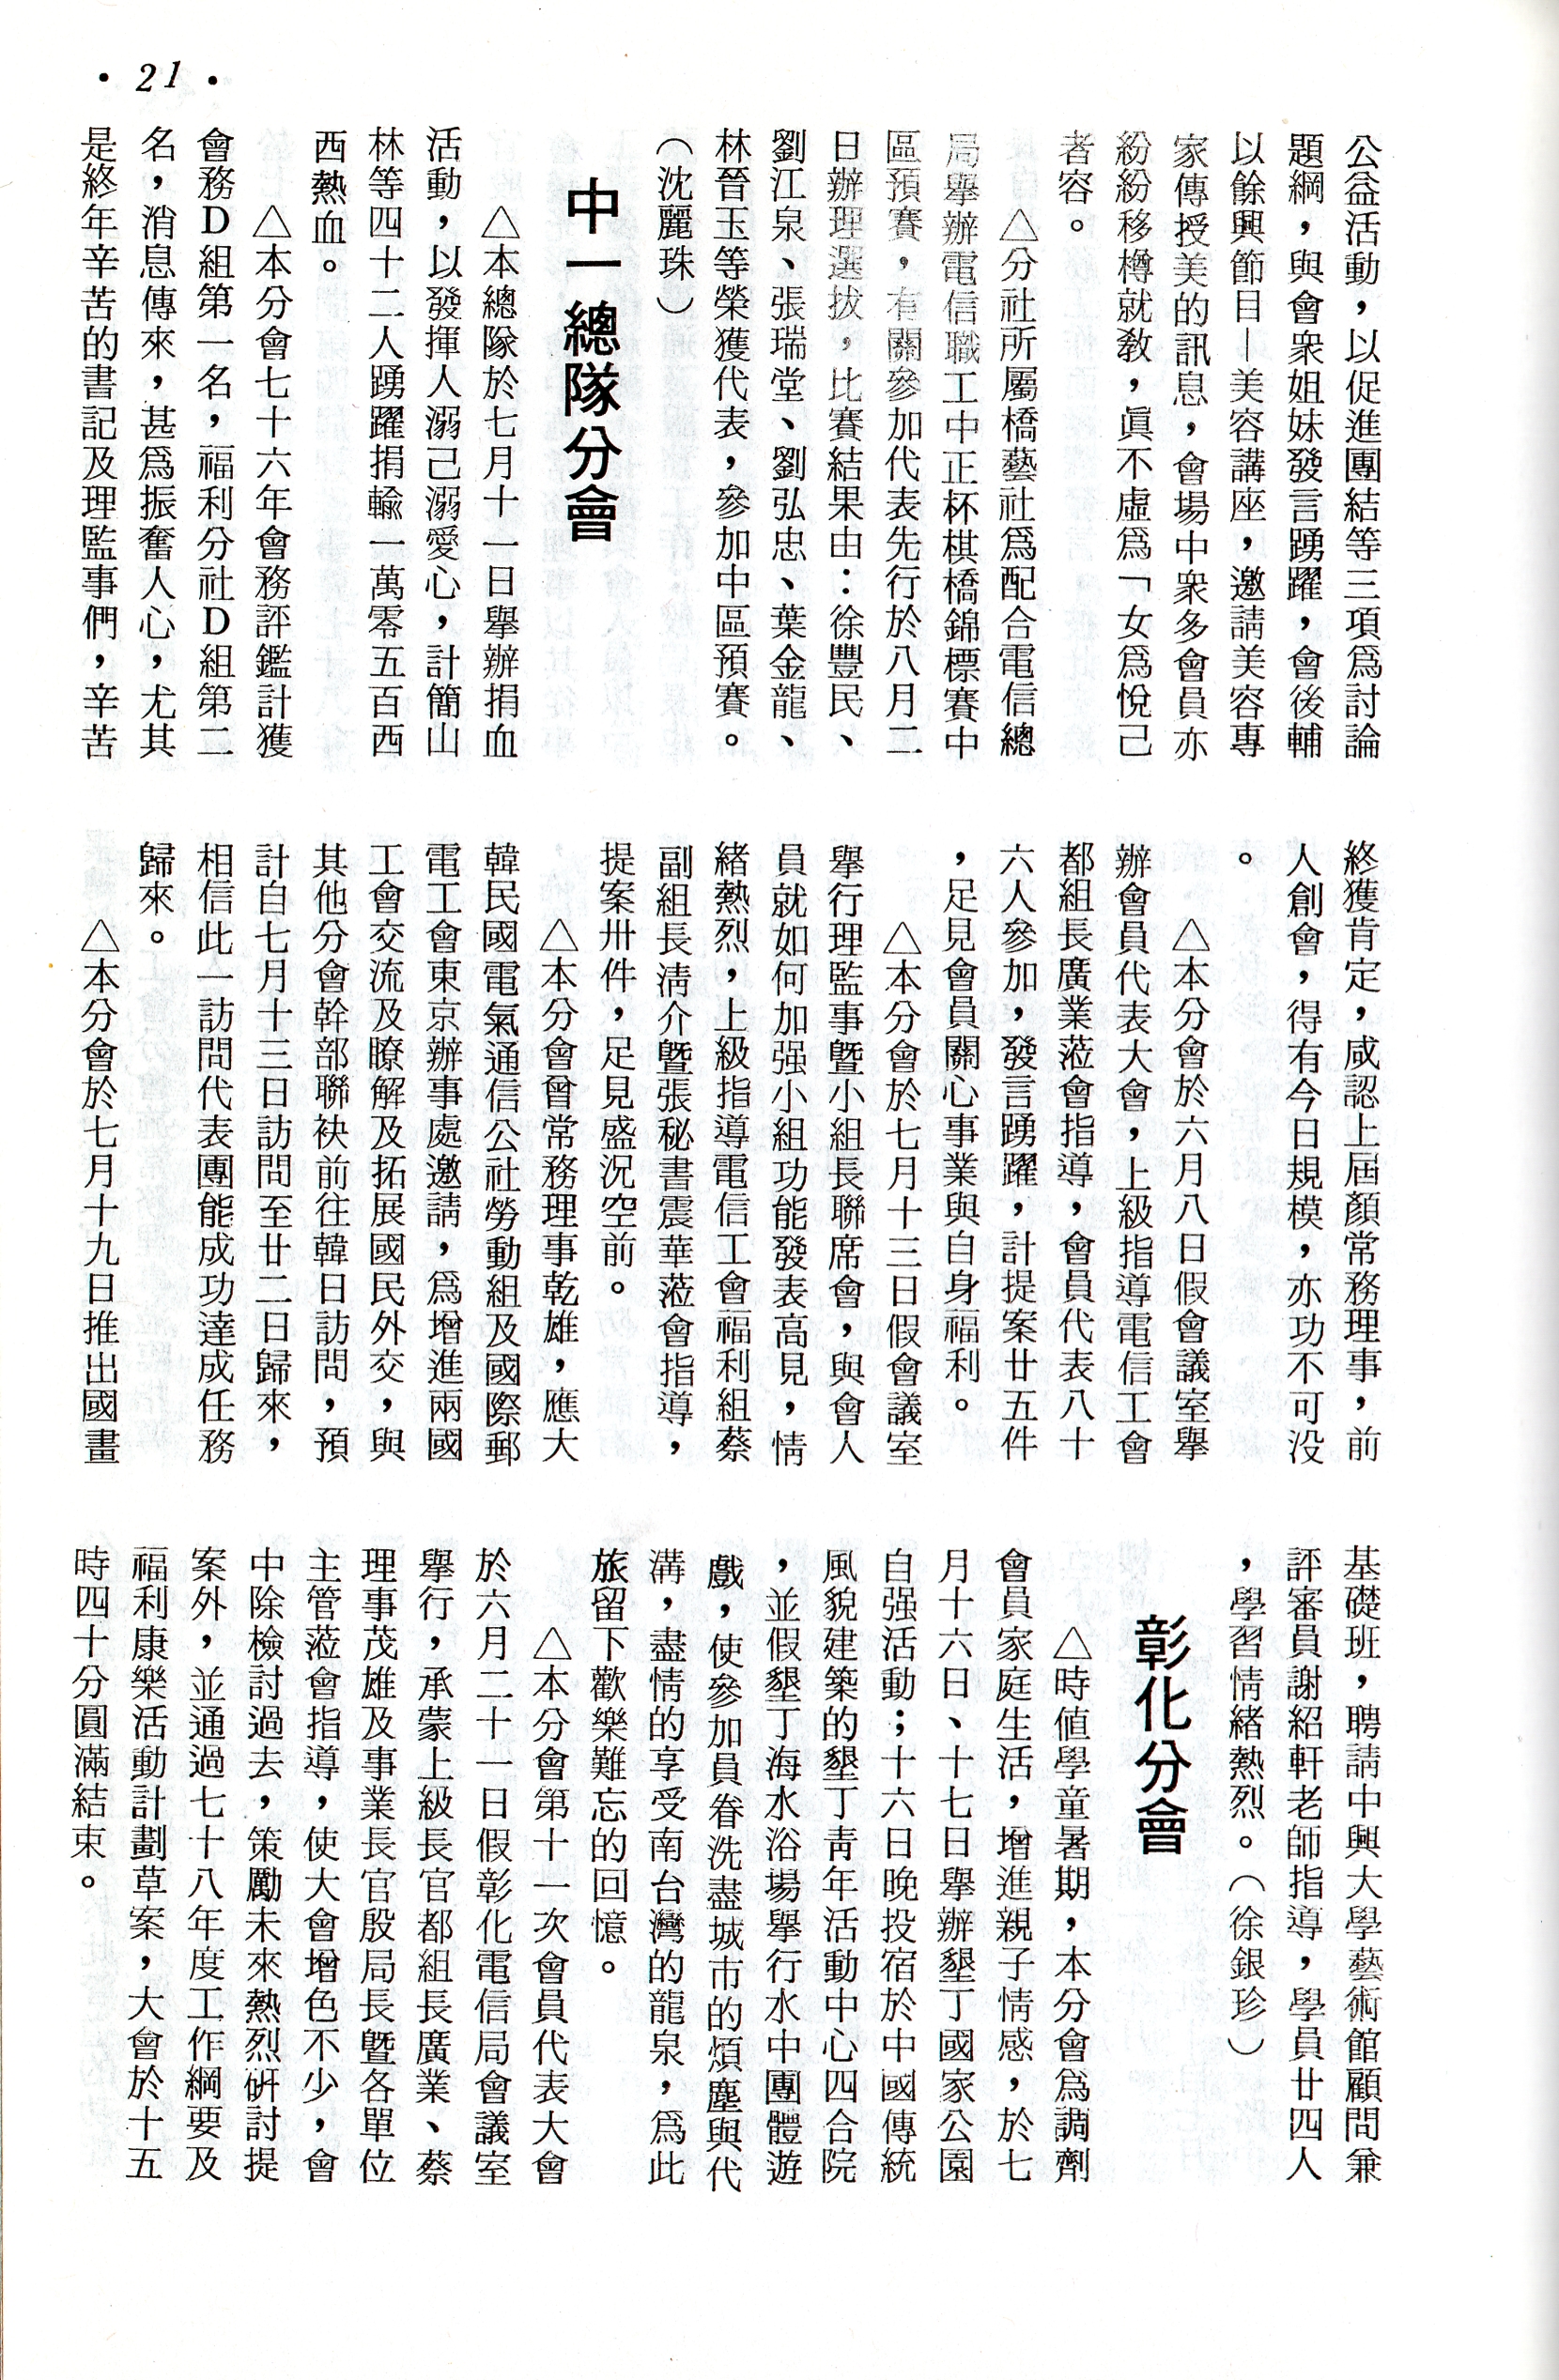 • 21 •
公益活動，以促進團結等三項爲討論
題綱，與會衆姐妹發言踴躍，會後輔
以餘興節目－美容講座，邀請美容專
家傳授美的訊息，會場中衆多會員亦
紛紛移樽就教，眞不虛爲「女爲悅己
者容。
△分社所屬橋藝社爲配合電信總
局舉辦電信職工中正杯棋橋錦標賽中
區預賽，有關參加代表先行於八月二
日辦理選拔，比賽結果由：徐豐民、
劉江泉、張瑞堂、劉弘忠、葉金龍、
林晉玉等榮獲代表，參加中區預賽。
（沈麗珠）
中一總隊分會
△本總隊於七月十一日舉辦捐血
活動，以發揮人溺己溺愛心，計簡山
林等四十二人踴躍捐輸一萬零五百西
西熱血。
△本分會七十六年會務評鑑計獲
會務D組第一名，福利分社D組第二
名，消息傳來，甚爲振奮人心，尤其
是終年辛苦的書記及理監事們，辛苦
終獲肯定，咸認上屆顏常務理事，前
人創會，得有今日規模，亦功不可没
。
△本分會於六月八日假會議室舉
辦會員代表大會，上級指導電信工會
都組長廣業蒞會指導，會員代表八十
六人參加，發言踴躍，計提案廿五件
，足見會員關心事業與自身福利。
△本分會於七月十三日假會議室
舉行理監事曁小組長聯席會，與會人
員就如何加强小組功能發表高見，情
緒熱烈，上級指導電信工會福利組蔡
副組長淸介曁張秘書震華蒞會指導，
提案卅件，足見盛況空前。
△本分會曾常務理事乾雄，應大
韓民國電氣通信公社勞動組及國際郵
電工會東京辦事處邀請，爲增進兩國
工會交流及瞭解及拓展國民外交，與
其他分會幹部聯袂前往韓日訪問，預
計自七月十三日訪問至廿二日歸來，
相信此一訪問代表團能成功達成任務
歸來。
△本分會於七月十九日推出國畫
基礎班，聘請中興大學藝術館顧問兼
評審員謝紹軒老師指導，學員廿四人
，學習情緒熱烈。（徐銀珍）
彰化分會
△時値學童暑期，本分會爲調劑
會員家庭生活，增進親子情感，於七
月十六日、十七日舉辦墾丁國家公園
自强活動；十六日晚投宿於中國傳統
風貌建築的墾丁靑年活動中心四合院
，並假墾丁海水浴場舉行水中團體遊
戲，使參加員眷洗盡城市的煩塵與代
溝，盡情的享受南台灣的龍泉，爲此
旅留下歡樂難忘的回憶。
△本分會第十一次會員代表大會
於六月二十一日假彰化電信局會議室
舉行，承蒙上級長官都組長廣業、蔡
理事茂雄及事業長官殷局長曁各單位
主管蒞會指導，使大會增色不少，會
中除檢討過去，策勵未來熱烈硏討提
案外，並通過七十八年度工作綱要及
福利康樂活動計劃草案，大會於十五
時四十分圓滿結束。